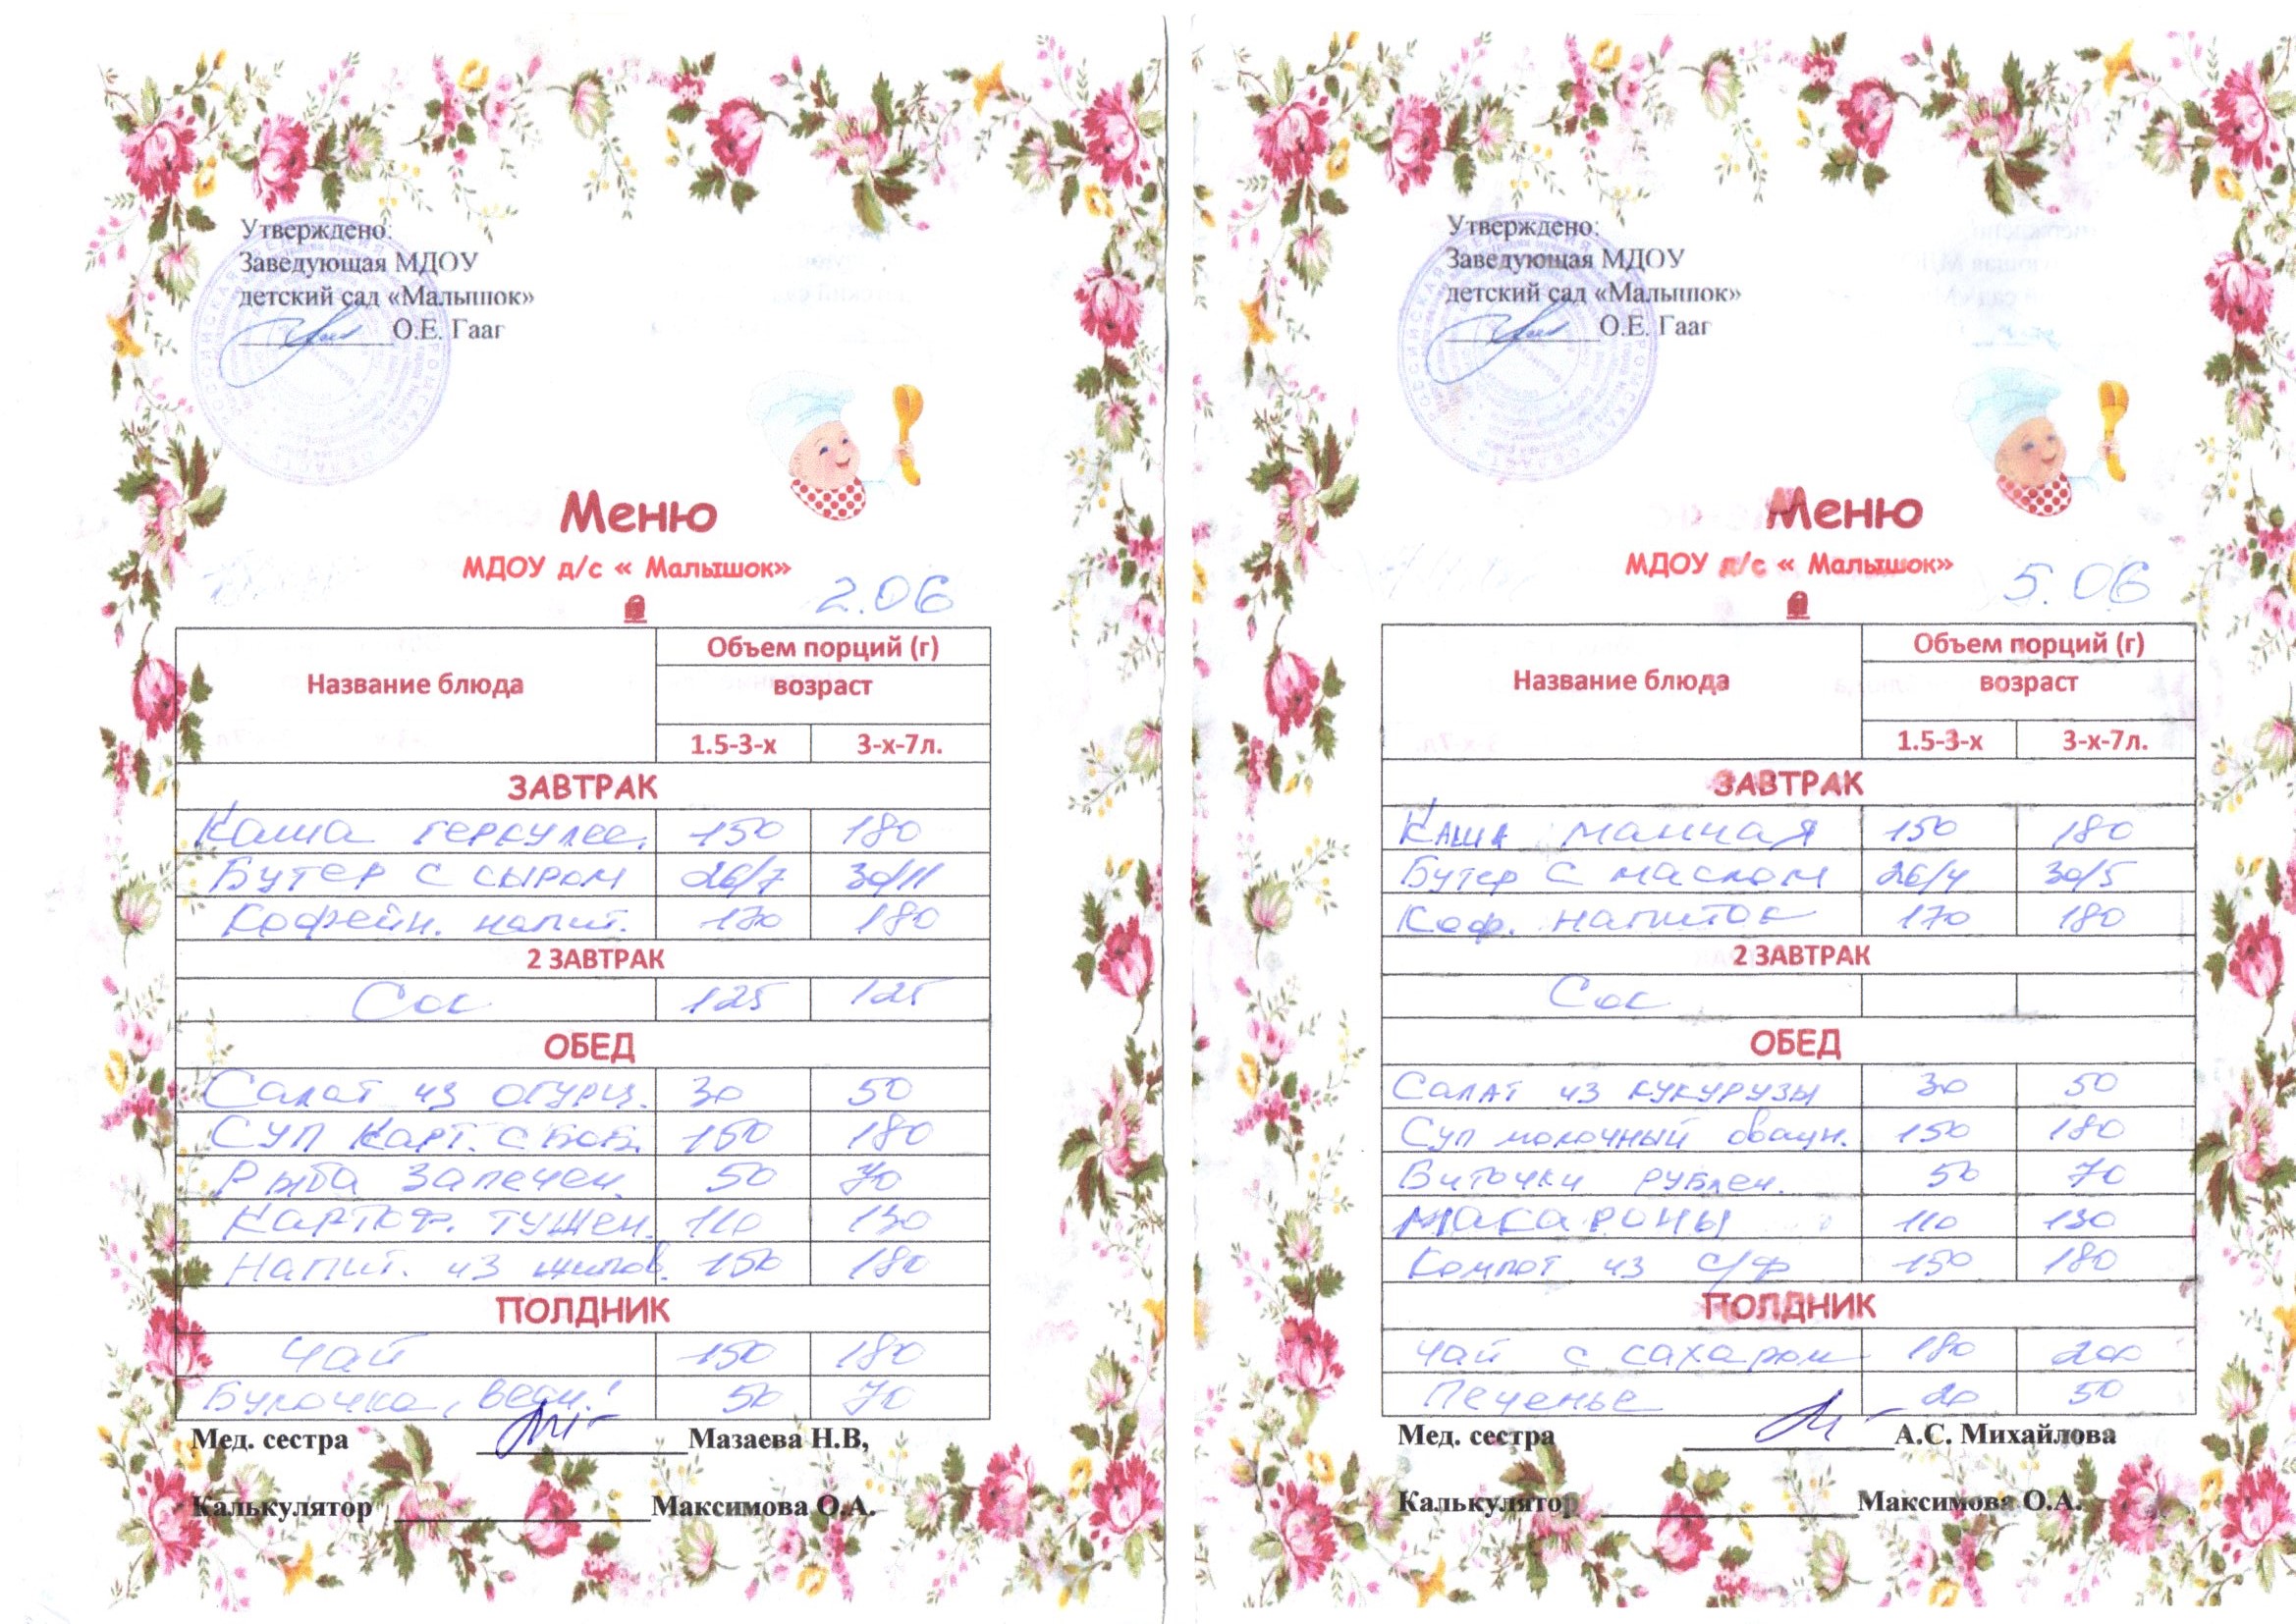 Утверждено:
Заведующая МДОУ
детский сад «Малышок»
О.Е. Гааг
Меню
МДОУ д/с « Малышок»
2.06
Название блюда
Объем порций (г)
возраст
1.5-3-х 3-х-7л.
ЗАВТРАК
Каша геркулес. 150 180
Бутер с сыром 26/7 30/11
Кофейн. напит. 170 180
2 ЗАВТРАК
Сок 125 125
ОБЕД
Салат из огурц. 30 50
Суп карт. с боб. 150 180
Рыба запечен. 50 70
Картоф. тушен. 110 130
Напит. из шипов. 150 180
ПОЛДНИК
Чай 150 180
Булочка, 50 70
Мед. сестра Мазаева Н.В,
Калькулятор Максимова О.А.
Утверждено:
Заведующая МДОУ
детский сад «Малышок»
О.Е. Гааг
Меню
МДОУ д/с « Малышок»
5.06
Название блюда
Объем порций (г)
возраст
1.5-3-х 3-х-7л.
ЗАВТРАК
Каша манная 150 180
Бутер с маслом 26/4 30/5
Коф. напиток 170 180
2 ЗАВТРАК
Сок
ОБЕД
Салат из кукурузы 30 50
Суп молочный овощн. 150 180
Биточки рублен. 50 70
Макароны 110 130
Компот из с/ф 150 180
ПОЛДНИК
Чай с сахаром 180 200
Печенье 20 50
Мед. сестра А.С. Михайлова
Калькулятор Максимова О.А.